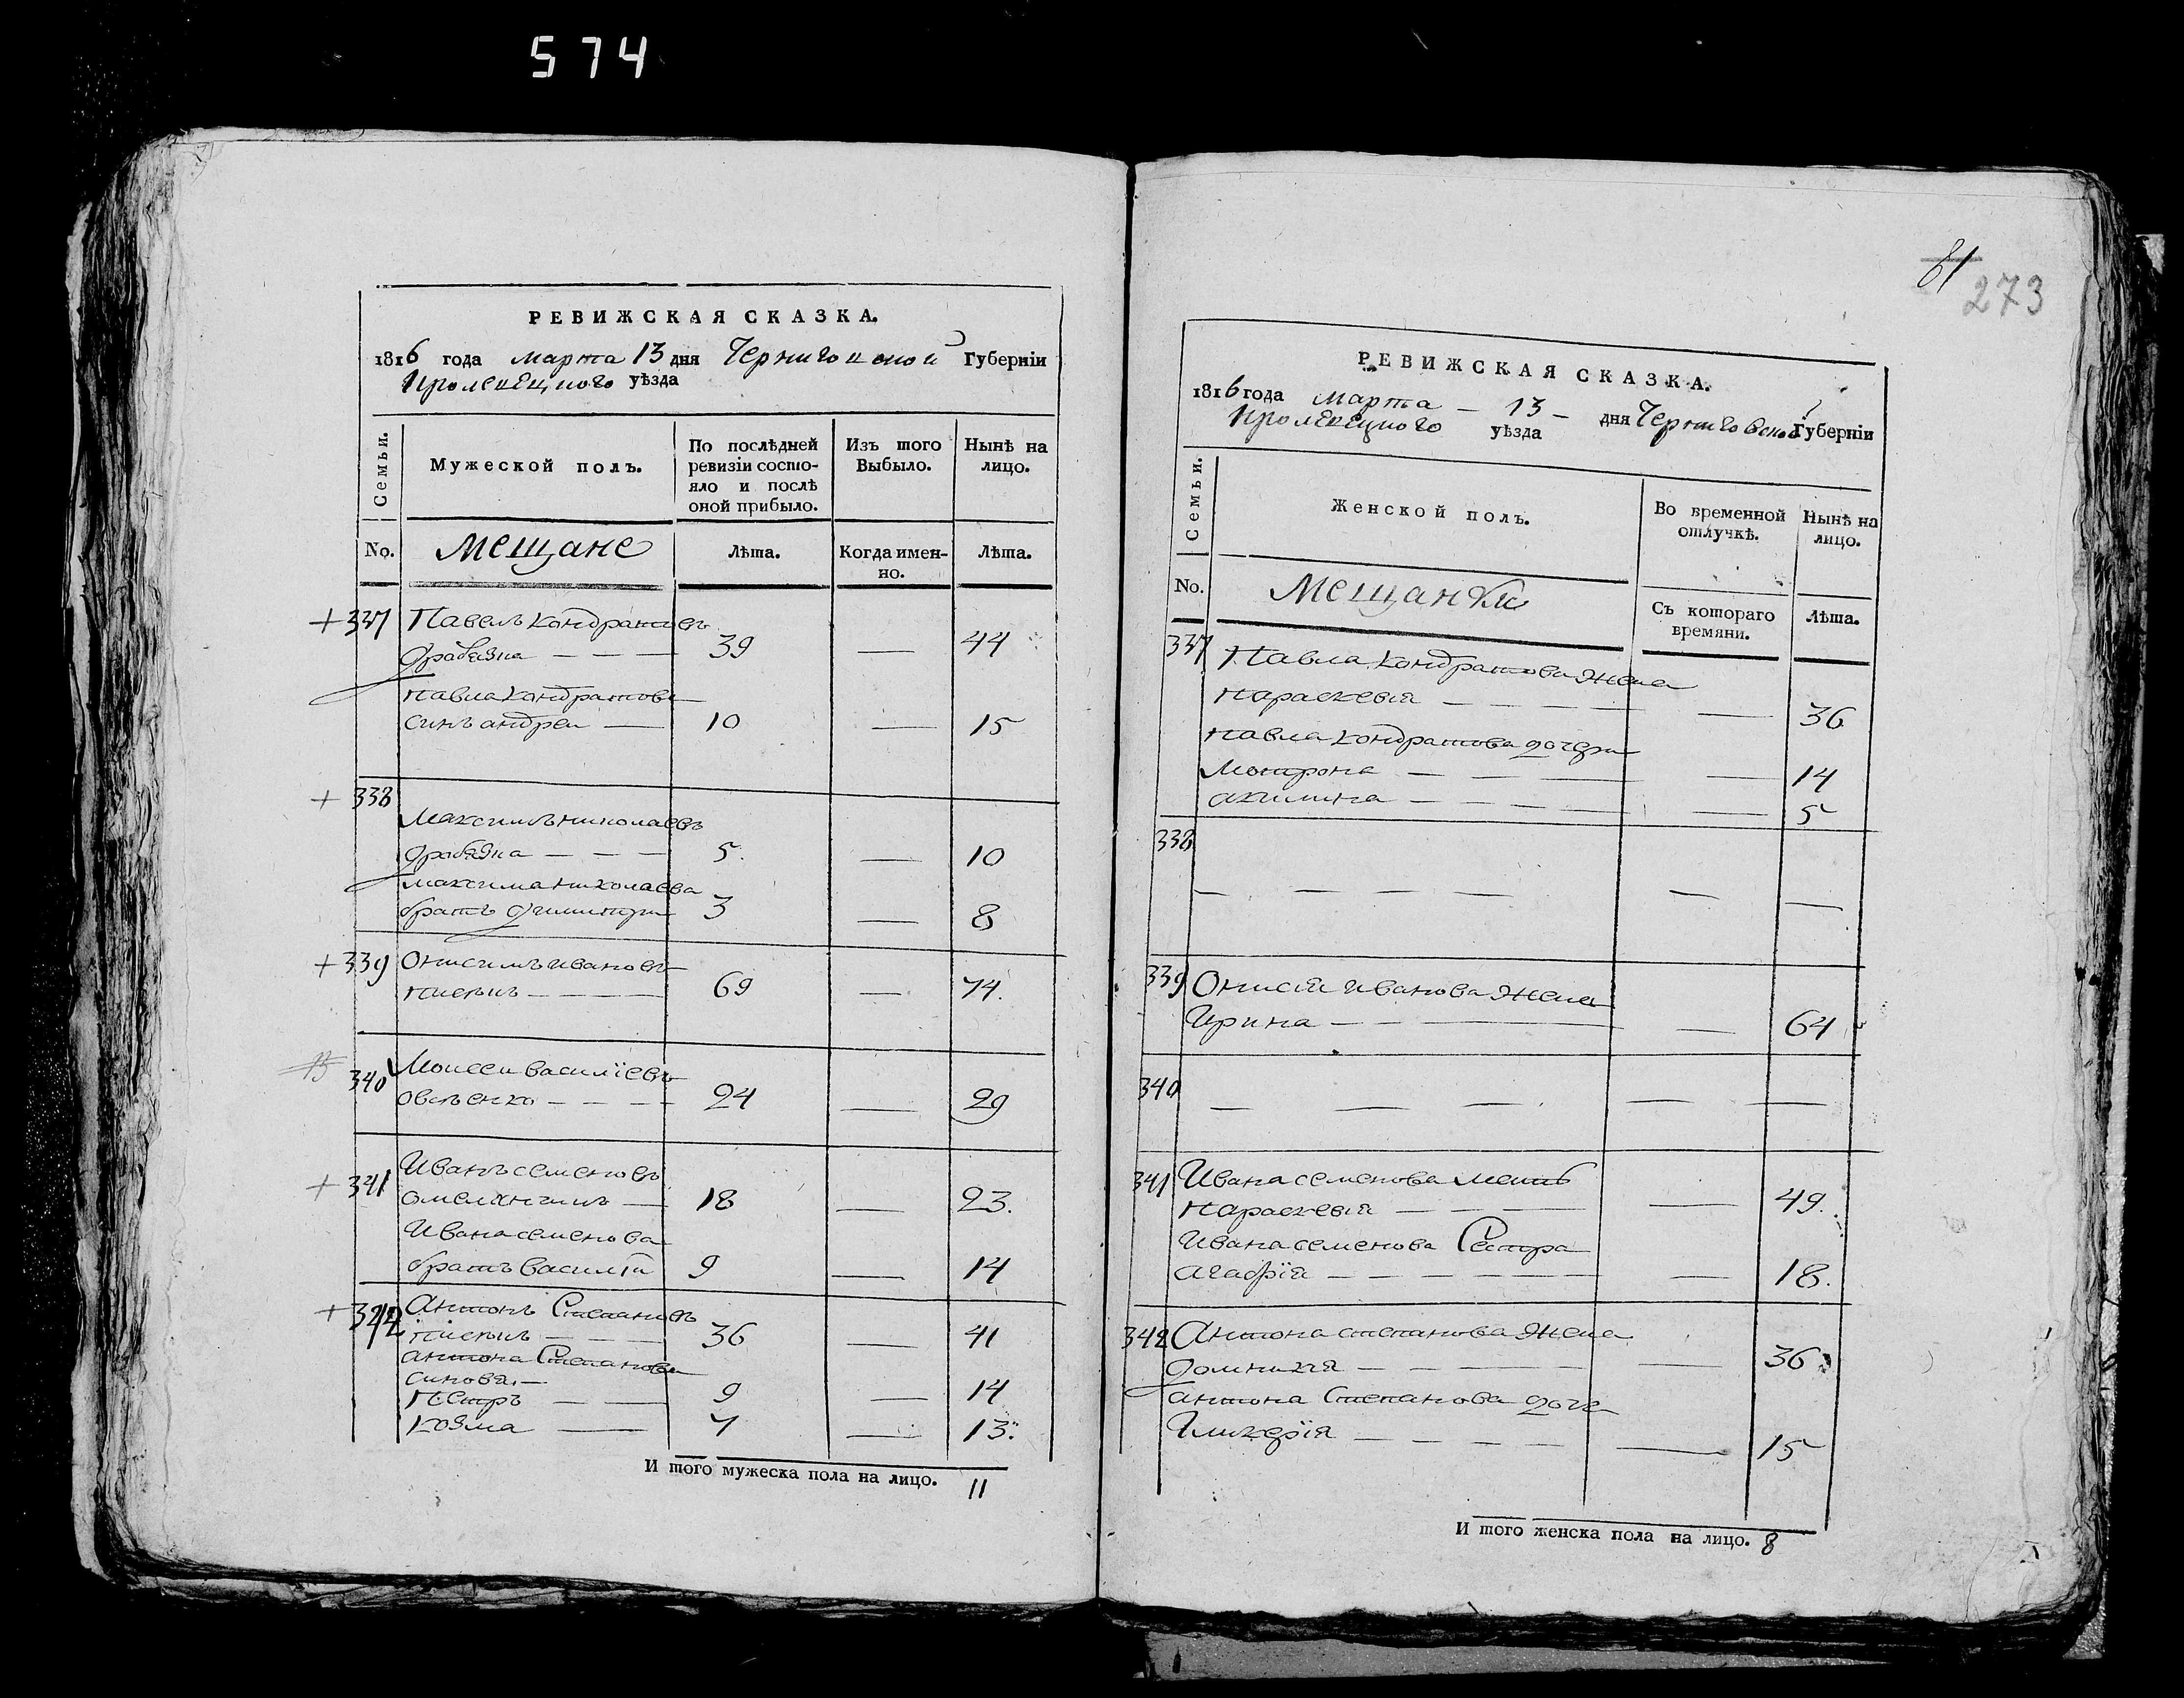 574
РЕВИЖСКАЯ СКАЗКА.
1816 года марта 13 дня Черниговской Губерніи
Кролевецкого уѣзда
Семьи.
Мужеской полъ.
По послѣдней ревизіи состояло и послѣ оной прибыло.
Изъ того Выбыло.
Нынѣ на лицо.
No.
Мещане
Лѣта.
Когда именно.
Лѣта.
+ 337 Павелъ Кондратовъ
39 — 44
Павла Кондратова
синъ андреи — 10 — 15
+ 338
Максимъ николаевъ
5. — 10
максима николаева
братъ димитри 3 — 8
+ 339 Онисимъ ивановъ
69 — 74.
340 Моисеи василіевъ
24 — 29
+ 341 Иванъ семеновъ
18 — 23.
Ивана семенова
братъ василій 9 — 14
+ 342 Антонъ Степановъ
36 — 41
антона Степанова
синовя. —
Петръ — — 9 — 14
козма — 7 — 13.
И того мужеска пола на лицо. 11
61
273
РЕВИЖСКАЯ СКАЗКА.
1816 года Марта — 13 — дня Черниговской Губерніи
Кролевецкого уѣзда
Семьи.
Женской полъ.
Во временной отлучкѣ.
Нынѣ на лицо.
No.
Мещанки
Съ котораго времяни.
Лѣта.
337 Павла Кондратова жена
Параскевія — — — — — 36
павла кондратова дочери
Мотрона — — — — 14
акилина — — — — — 5
338
— — — — — —
339 Онисія Иванова жена
Ирина — — — — 64
340
— — — — —
341 Ивана семенова мать
Параскевія — — — — 49.
Ивана семенова Сестра
агафія — — — — — — 18.
342 Антона степанова жена
домникія — — — — — 36
антона Степанова доч
Гликерія — — — — — 15
И того женска пола на лицо. 8